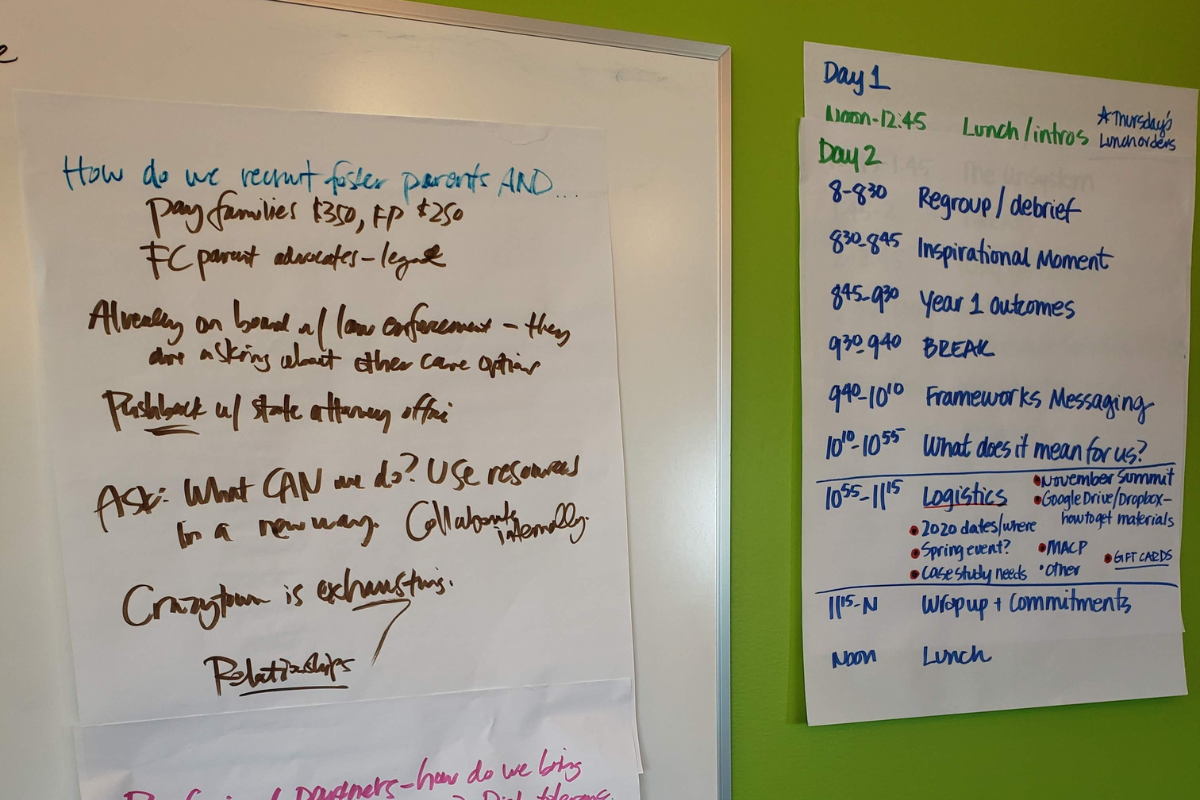 How do we recruit foster parents AND...
pay families $350, FP $250
FC parent advocates - legal
Already on board w/ law enforcement - they
are asking about other care options
Pushback w/ state attorney office
Ask: What CAN we do? Use resources
in a new way. Collaborate
internally.
Crazytown is exhausting.
Relationships
partners - how do we bring
Day 1
Noon-12:45 Lunch/intros
*Thursday's
Lunch orders
Day 2
8-8:30 Regroup/debrief
8:30-8:45 Inspirational Moment
8:45-9:30 Year 1 outcomes
9:30-9:40 BREAK
9:40-10:10 Frameworks Messaging
10:10-10:55 What does it mean for us?
10:55-11:15 Logistics
• November Summit
• Google Drive/Dropbox-
how to get materials
• 2020 dates/where
• Spring event?
• Case study needs
• MACP
• Other
• GIFT CARDS
11:15-N Wrap up + Commitments
Noon Lunch